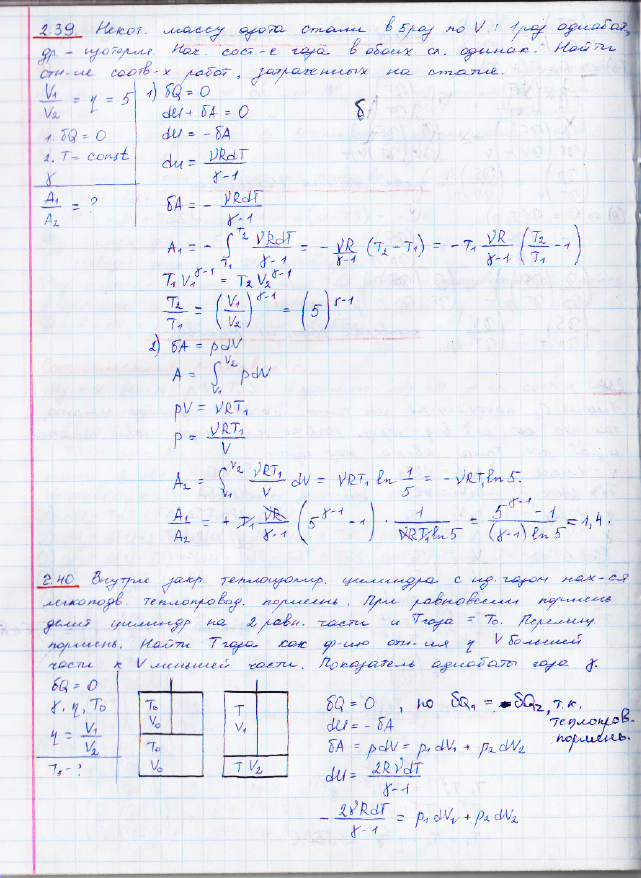 2.39 Некот. массу азота стали в 5 раз по V: 1 раз адиабат,
др. - изотерм. Нач. сост-е газа в обоих сл. одинак. Найти
отн-ие соотв-х работ, затраченных на сжатие.
V₁/V₂ = η = 5
1. δQ = 0
2. T = const
γ
A₁/A₂ = ?
1) δQ = 0
dU + δA = 0
dU = -δA
dU = νRdT/(γ-1)
δA = - νRdT/(γ-1)
δ
A₁ = - ∫_{T₁}^{T₂} νRdT/(γ-1) = - νR/(γ-1) (T₂ - T₁) = - T₁ νR/(γ-1) (T₂/T₁ - 1)
T₁V₁^{γ-1} = T₂V₂^{γ-1}
T₂/T₁ = (V₁/V₂)^{γ-1} = (5)^{γ-1}
2) δA = pdV
A = ∫_{V₁}^{V₂} pdV
pV = νRT₁
p = νRT₁/V
A₂ = ∫_{V₁}^{V₂} νRT₁/V dV = νRT₁ ln 1/5 = - νRT₁ ln 5.
A₁/A₂ = + T₁ νR/(γ-1) (5^{γ-1} - 1) · 1/(νRT₁ ln 5) = (5^{γ-1} - 1)/((γ-1) ln 5) = 1,4.
2.40 Внутри закр. теплоизолир. цилиндра с ид. газом нах-ся
легкоподв. теплопровод. поршень. При равновесии поршень
делит цилиндр на 2 равн. части и T газа = T₀.
поршень. Найти T газа как ф-ию отн-ия η V большей
части к V меньшей части. Показатель адиабаты газа γ.
δQ = 0
γ, η, T₀
η = V₁/V₂
T - ?
T₀
V₀
T₀
V₀
T
V₁
T V₂
δQ = 0, но δQ₁ = -δQ₂, т.к.
теплопров.
поршень.
dU = -δA
δA = pdV = p₁dV₁ + p₂dV₂
dU = 2RνdT/(γ-1)
- 2νRdT/(γ-1) = p₁dV₁ + p₂dV₂